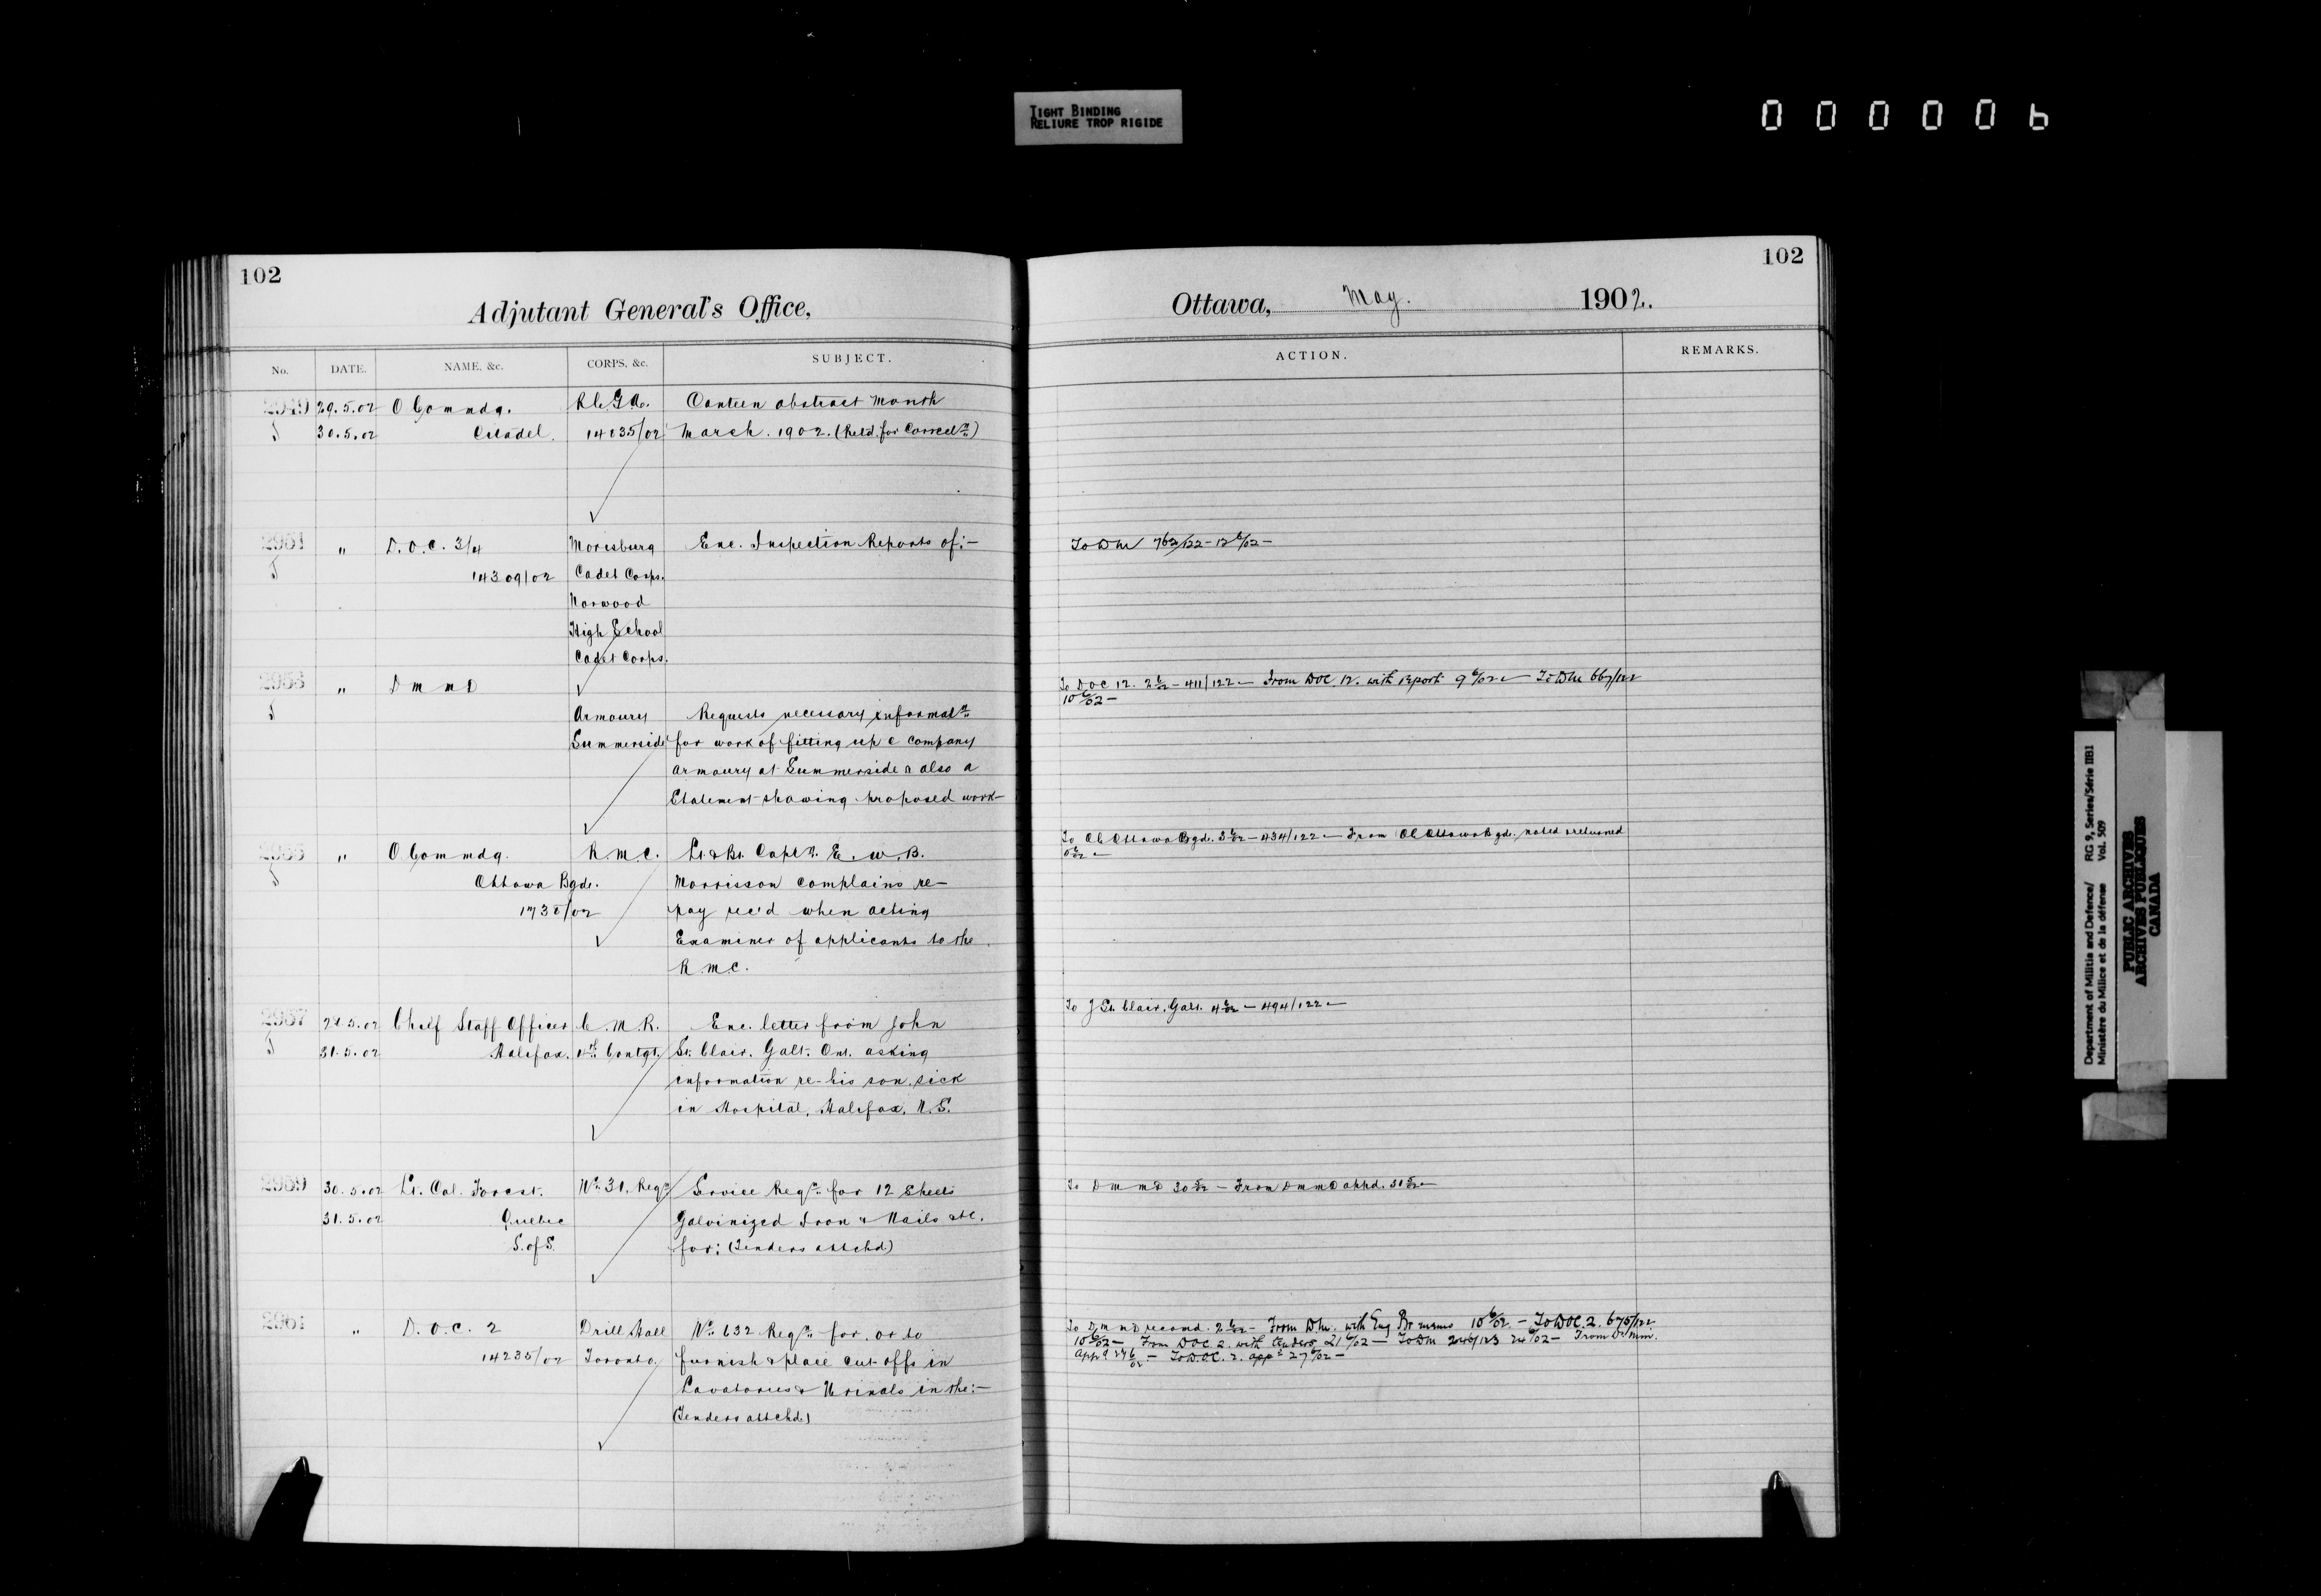 TIGHT BINDING
RELIURE TROP RIGIDE
000006
102
Adjutant General's Office,
No. DATE. NAME, &c. CORPS, &c. SUBJECT.
2949 29.5.02 O Commdg. R.C.G.A. Canteen abstract month
30.5.02 Citadel. 14035/02 March. 1902. (Retd. for Correctn)
2951 " D.O.C. 3/4 Morisburg Enc. Inspection Reports of:-
14309/02 Cadet Corps.
Norwood
High School
Cadet Corps.
2953 " D M n D
Armoury Requests necessary informatn
Summerside for work of fitting up C Company
armoury at Summerside & also a
Statement showing proposed work-
2955 " O Commdg. R.M.C. Lt. & Bt. Captn. E.W.B.
Ottawa Bgde. Morrisson complains re-
pay rec'd when acting
Examiner of applicants to the
R.M.C.
2957 28.5.02 Chief Staff Officer C.M.R. Enc. letter from John
31.5.02 Halifax. Contgt. St. Clair. Galt. Ont. asking
information re-his son, sick
in Hospital, Halifax, N.S.
2959 30.5.02 Lt. Col. Forest. No. 31. Reqn Service Reqn. for 12 Sheets
31.5.02 Quebec Galvinized Iron & Nails etc.
S. of S. for: (Tenders attchd.)
2961 " D.O.C. 2 Drill Hall No. 632 Reqn. for. or to
14235/02 Toronto. furnish & place cut-offs in
Lavatories & Urinals in the:-
(Tenders attchd.)
102
Ottawa, May. 1902.
ACTION. REMARKS.
To DM 762/122 - 12 6/02 -
To DOC 12. 2 6/02 - 411/122 - From DOC. 12. with report 9 6/02 - To DM 667/122
10 6/02 -
To OC Ottawa Bgde. 3 6/02 - 434/122 - From OC Ottawa Bgde. noted & returned
6/02 -
To J St. Clair, Galt. 4 6/02 - 494/122 -
To D m n D 30 5/02 - From D m n D appd. 31 5/02 -
To D m n D recomd. 2 6/02 - From DM. with Eng Br memo 10 6/02. - To DOC. 2. 675/122
10 6/02 - From DOC 2 with tenders 21 6/02 - To DM 24 6/02 - From D. Min.
appd 27 6/02. - To D.O.C. 2. appd 27 6/02 -
Department of Militia and Defence/ RG 9, Series/Série IIB1
Ministère du Milice et de la défense Vol. 509
PUBLIC ARCHIVES
ARCHIVES PUBLIQUES
CANADA